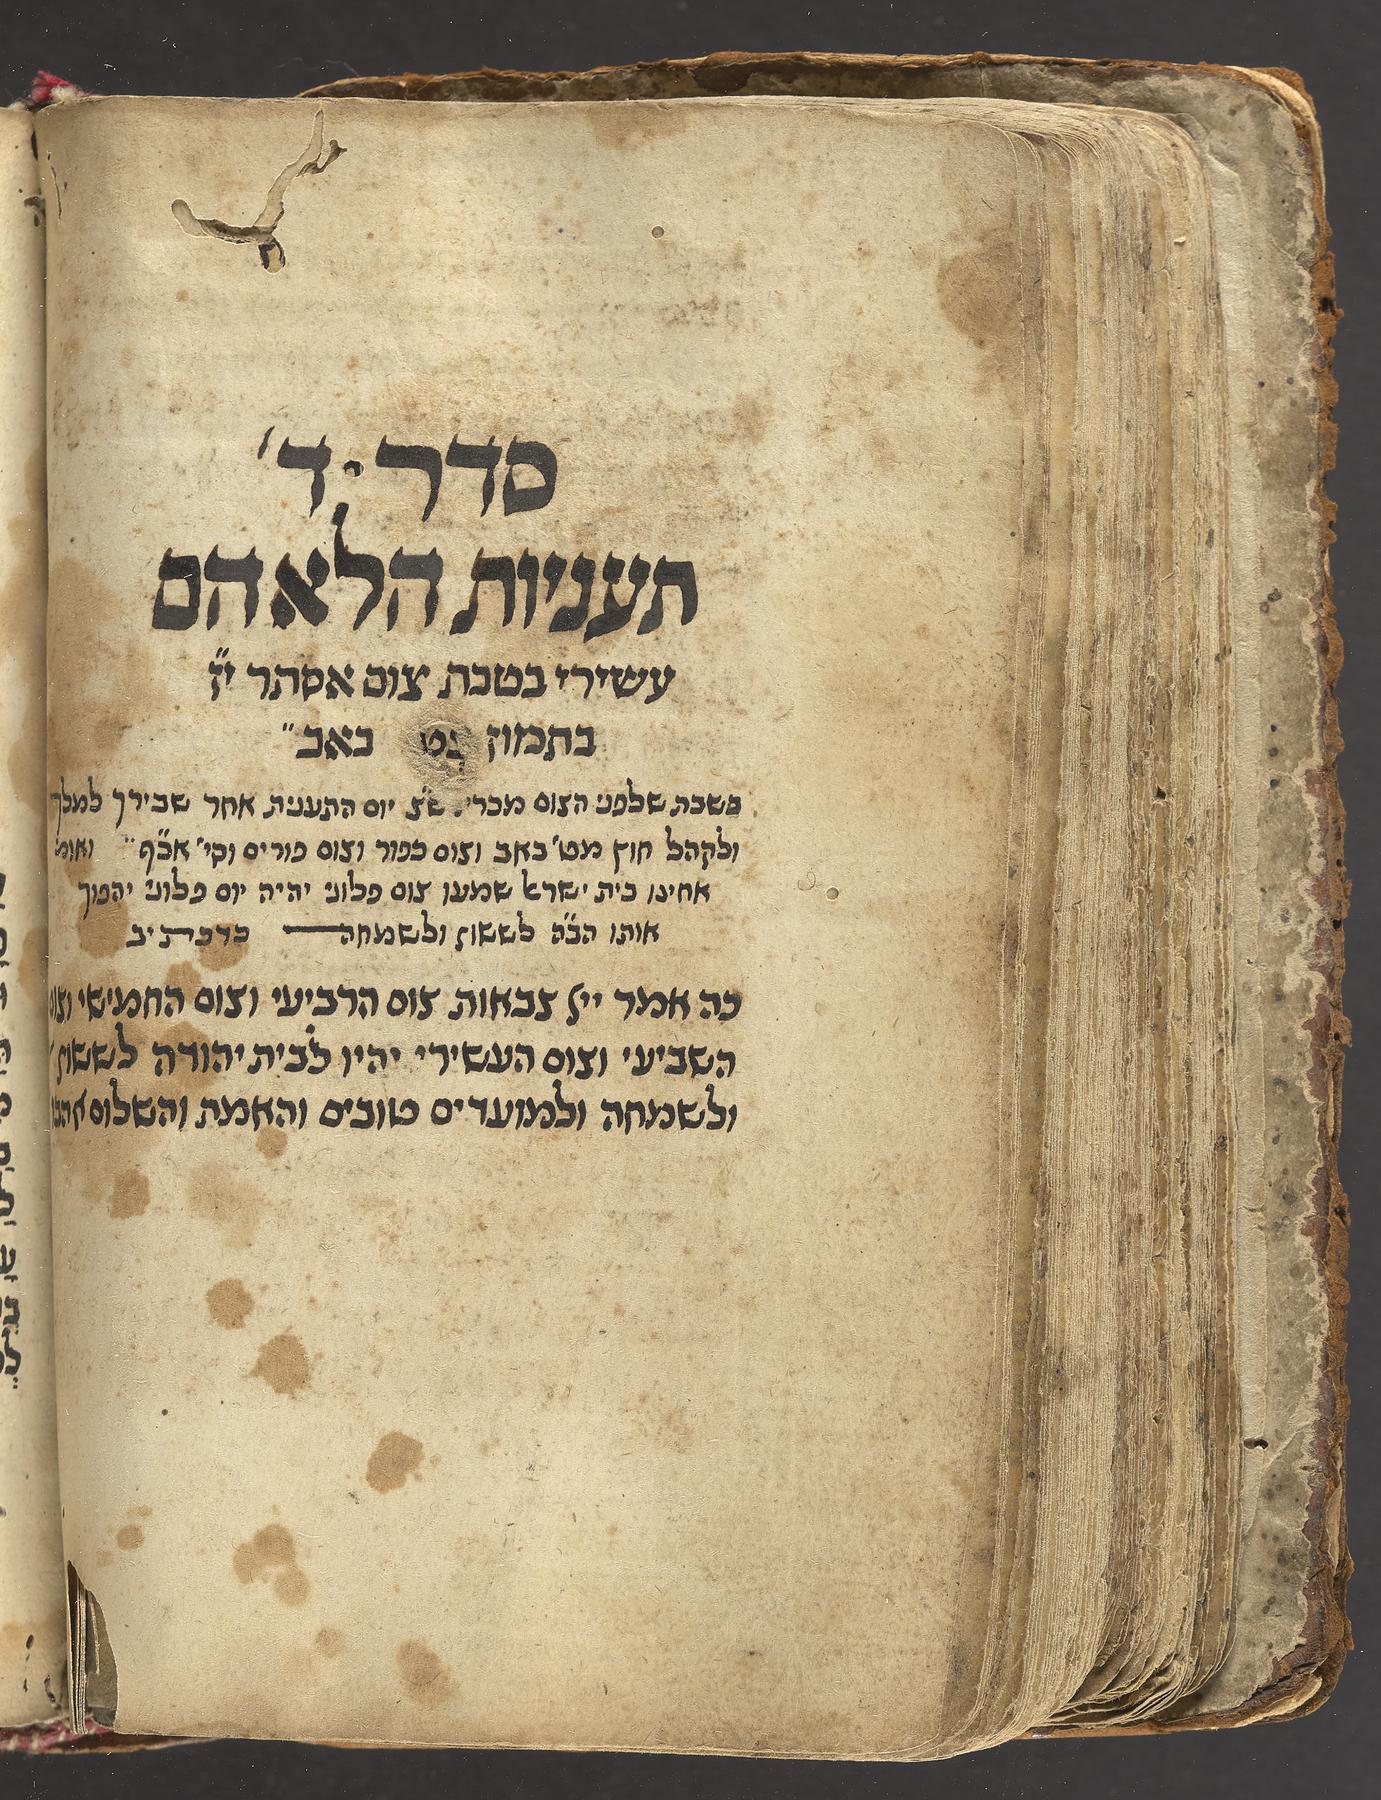 סדר ד׳
תעניות הלא הם
עשירי בטבת צום אסתר י״ז
בתמוז ט באב״
בשבת שלפני הצום מכריז ש״צ יום התענית אחר שבירך למלך
ולקהל חוץ מט׳ באב וצום כפור וצום פורים וסי׳ אכ״ף ואומ׳
אחינו בית ישראל שמעו צום פלוני יהיה יום פלוני יהפוך
אותו הב״ה לששון ולשמחה כדכתיב
כה אמר ייי צבאות צום הרביעי וצום החמישי וצום
השביעי וצום העשירי יהיו לבית יהודה לששון
ולשמחה ולמועדים טובים והאמת והשלום אהבו